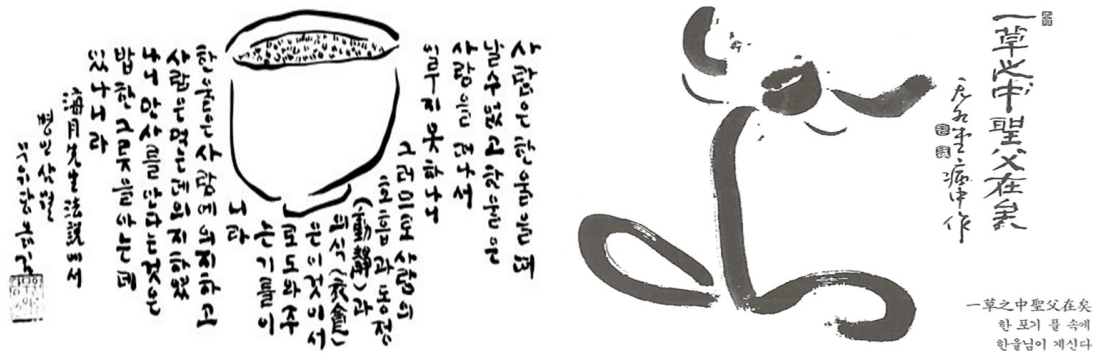 사람은 한울을 떠
날수없고 한울은
사람을 떠나서
이루지 못하나니
그러므로 사람의
호흡과 동정
(動靜)과
의식(衣食)
은 이것이서
로도와주
는기틀이
니라
한울은 사람에 의지하고
사람은 먹는데 의지하였
나니 만사를 안다는것은
밥 한그릇을 아는데
있나니라
海月先生法說에서
병인삼월
무위당
一草之中聖父在矣
病中作
一草之中聖父在矣
한 포기 풀 속에
한울님이 계신다